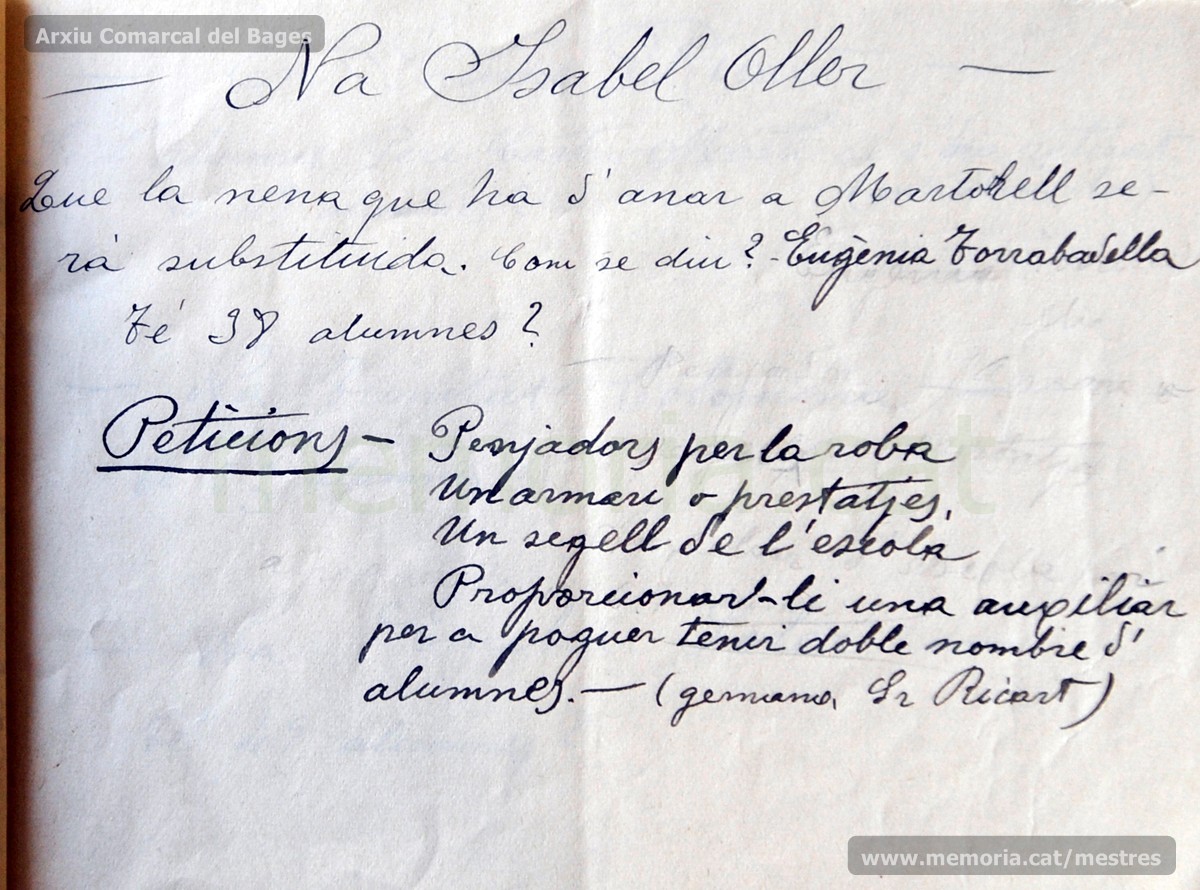 Arxiu Comarcal del Bages
— Na Isabel Oller —
Que la nena que ha d'anar a Martorell se-
rà substituida. Com se diu? - Eugènia Torrabadella
Té 38 alumnes?
Peticions — Penjadors per la roba
Un armari o prestatjes.
Un segell de l'escola
Proporcionar-li una auxiliar
per a poguer tenir doble nombre d'
alumnes. — (germana Sr Ricart)
memoria.cat
www.memoria.cat/mestres